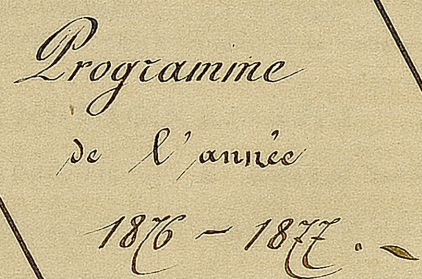 Programme
de l'année
1876 - 1877.